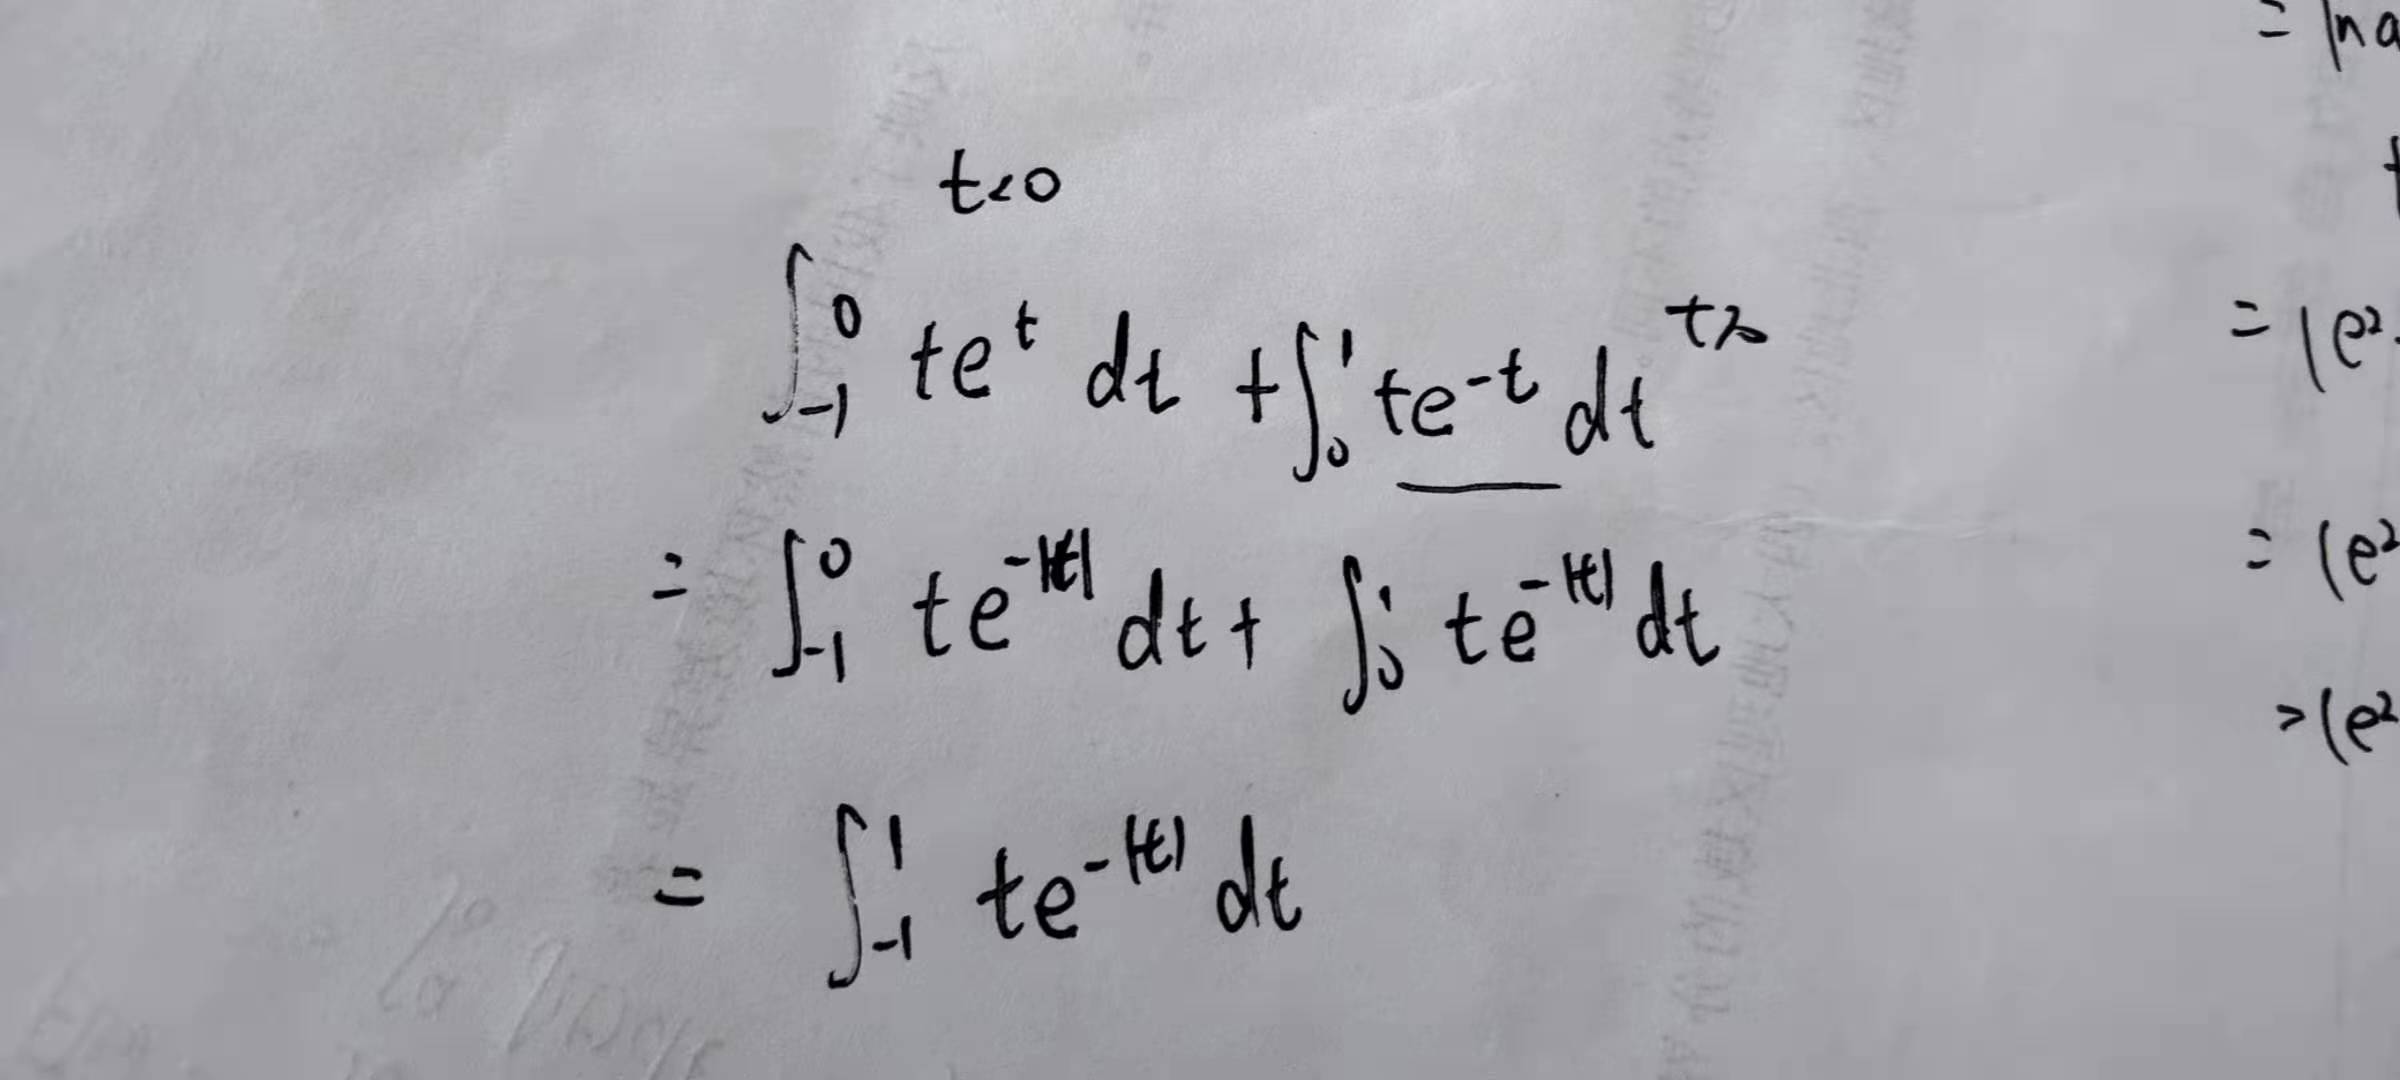 t<0
∫₋₁⁰ te^t dt + ∫₀¹ te^-t dt t>0
= ∫₋₁⁰ te^-|t| dt + ∫₀¹ te^-|t| dt
= ∫₋₁¹ te^-|t| dt
= ln a
= (e²
= (e²
(e²